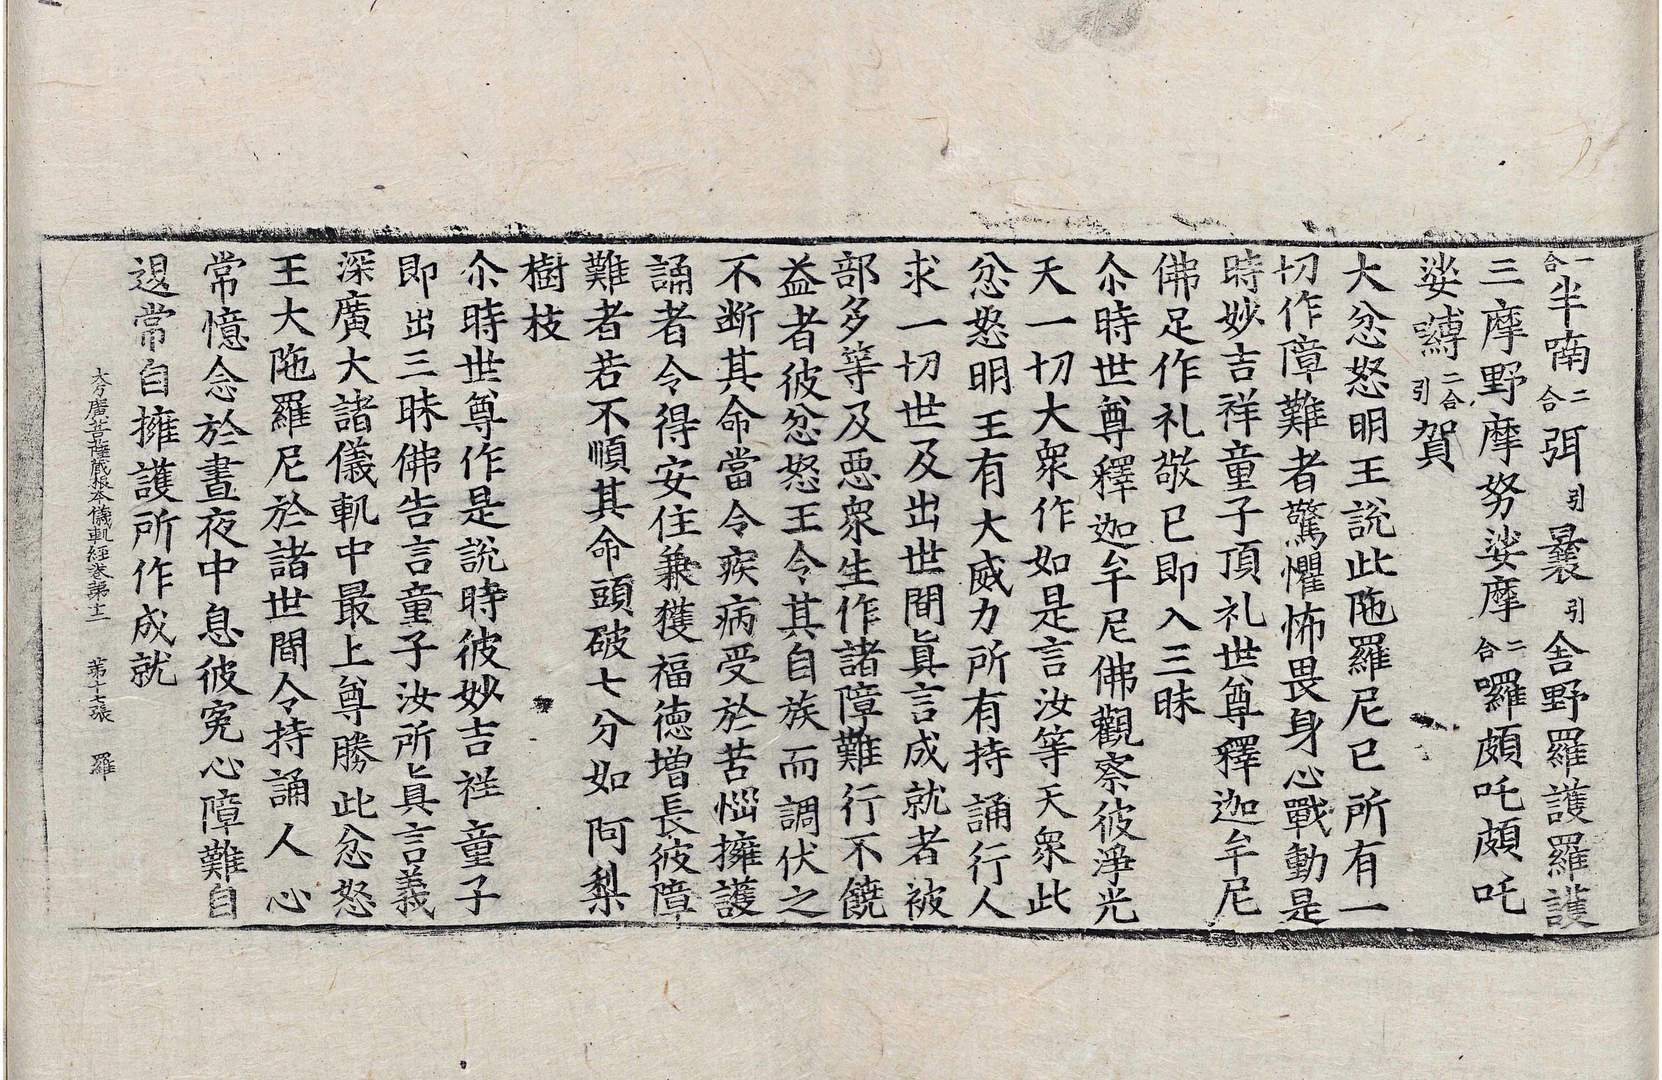 一合半喃二合弭引曩引舍野羅護羅護
三摩野摩努娑摩二合囉頗吒頗吒
娑嚩二合引賀
大忿怒明王說此陁羅尼已所有一
切作障難者驚懼怖畏身心戰動是
時妙吉祥童子頂礼世尊釋迦牟尼
佛足作礼敬已即入三昧
尒時世尊釋迦牟尼佛觀察彼淨光
天一切大衆作如是言汝等天衆此
忿怒明王有大威力所有持誦行人
求一切世及出世間眞言成就者被
部多等及惡衆生作諸障難行不饒
益者彼忿怒王令其自族而調伏之
不斷其命當令疾病受於苦惱擁護
誦者令得安住兼獲福德增長彼障
難者若不順其命頭破七分如阿梨
樹枝
尒時世尊作是說時彼妙吉祥童子
即出三昧佛告言童子汝所眞言義
深廣大諸儀軌中最上尊勝此忿怒
王大陁羅尼於諸世間令持誦人心
常憶念於晝夜中息彼寃心障難自
退常自擁護所作成就
大方廣菩薩藏根本儀軌經卷第十二 第十七張 羅